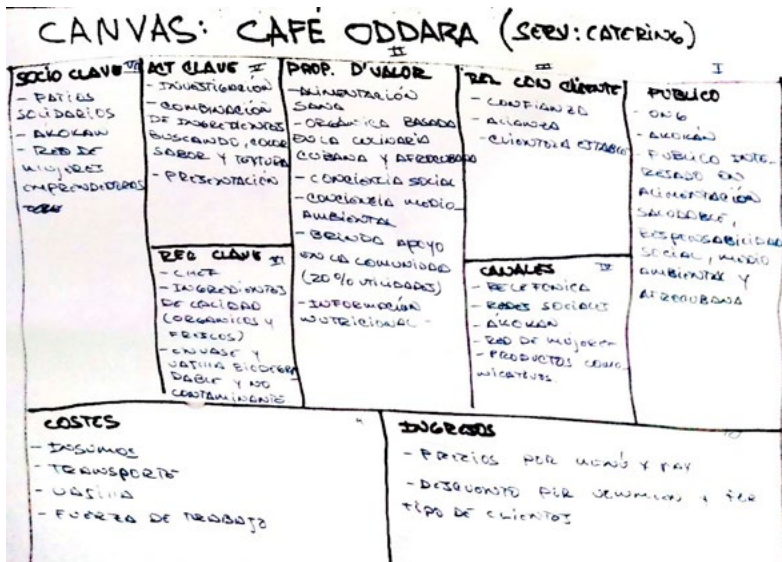 CANVAS: CAFÉ ODDARA (SERV: CATERING)
SOCIO CLAVE
- PATIOS
SOLIDARIOS
- AKOKAN
- RED DE
MUJERES
EMPRENDEDORAS
ACT CLAVE
- INVESTIGACIÓN
- COMBINACIÓN
DE INGREDIENTES
BUSCANDO, COLOR
SABOR Y TEXTURA
- PRESENTACIÓN
REC CLAVE VI
- CHEF
- INGREDIENTES
DE CALIDAD
(ORGANICOS Y
FRESCOS)
- ENVASE Y
VASILLA BIODEGRA
DABLE Y NO
CONTAMINANTE
II
PROP. D'VALOR
- ALIMENTACIÓN
SANA
- ORGÁNICA BASADA
EN LA CULINARIA
CUBANA Y AFROCUBANA
- CONCIENCIA SOCIAL
- CONCIENCIA MEDIO
AMBIENTAL
- BRINDA APOYO
EN LA COMUNIDAD
(20% UTILIDADES)
- INFORMACIÓN
NUTRICIONAL -
III
REL CON CLIENTE
- CONFIANZA
- ALIANZA
- CLIENTELA ESTABLE
CANALES IV
- TELEFONICA
- REDES SOCIALES
- AKOKAN
- RED DE MUJERES
- PRODUCTOS COMU
NICATIVOS.
I
PUBLICO
- ONG
- AKOKÁN
- PUBLICO INTE-
RESADO EN
ALIMENTACIÓN
SALUDABLE,
RESPONSABILIDAD
SOCIAL, MEDIO
AMBIENTAL Y
AFROCUBANA
COSTES
- INSUMOS
- TRANSPORTE
- VASILLA
- FUERZA DE TRABAJO
INGRESOS
- PRECIOS POR MENÚ Y PAX
- DESCUENTO POR VOLUMEN Y POR
TIPO DE CLIENTES